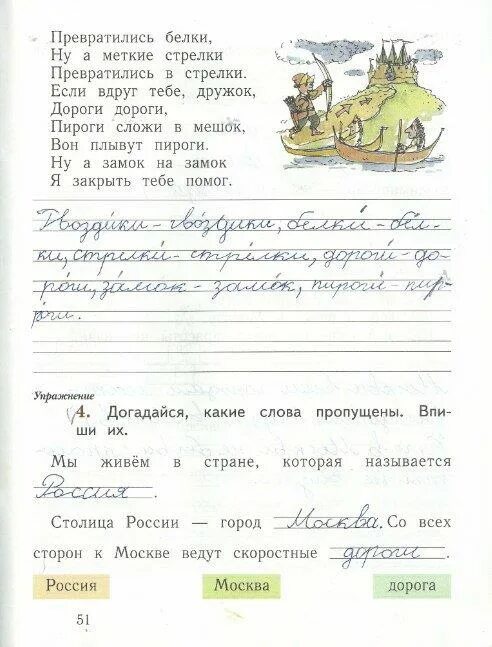 Превратились белки,
Ну а меткие стрелки
Превратились в стрелки.
Если вдруг тебе, дружок,
Дороги дороги,
Пироги сложи в мешок,
Вон плывут пироги.
Ну а замок на замок
Я закрыть тебе помог.
Гвозди́ки – гво́здики, белки́ – бе́л-
ки, стрелки́ – стре́лки, доро́ги – до-
ро́ги, за́мок – замо́к, пироги́ – пи-
ро́ги.
Упражнение
4. Догадайся, какие слова пропущены. Впи-
ши их.
Мы живём в стране, которая называется
Россия.
Столица России — город Москва. Со всех
сторон к Москве ведут скоростные дороги.
Россия Москва дорога
51